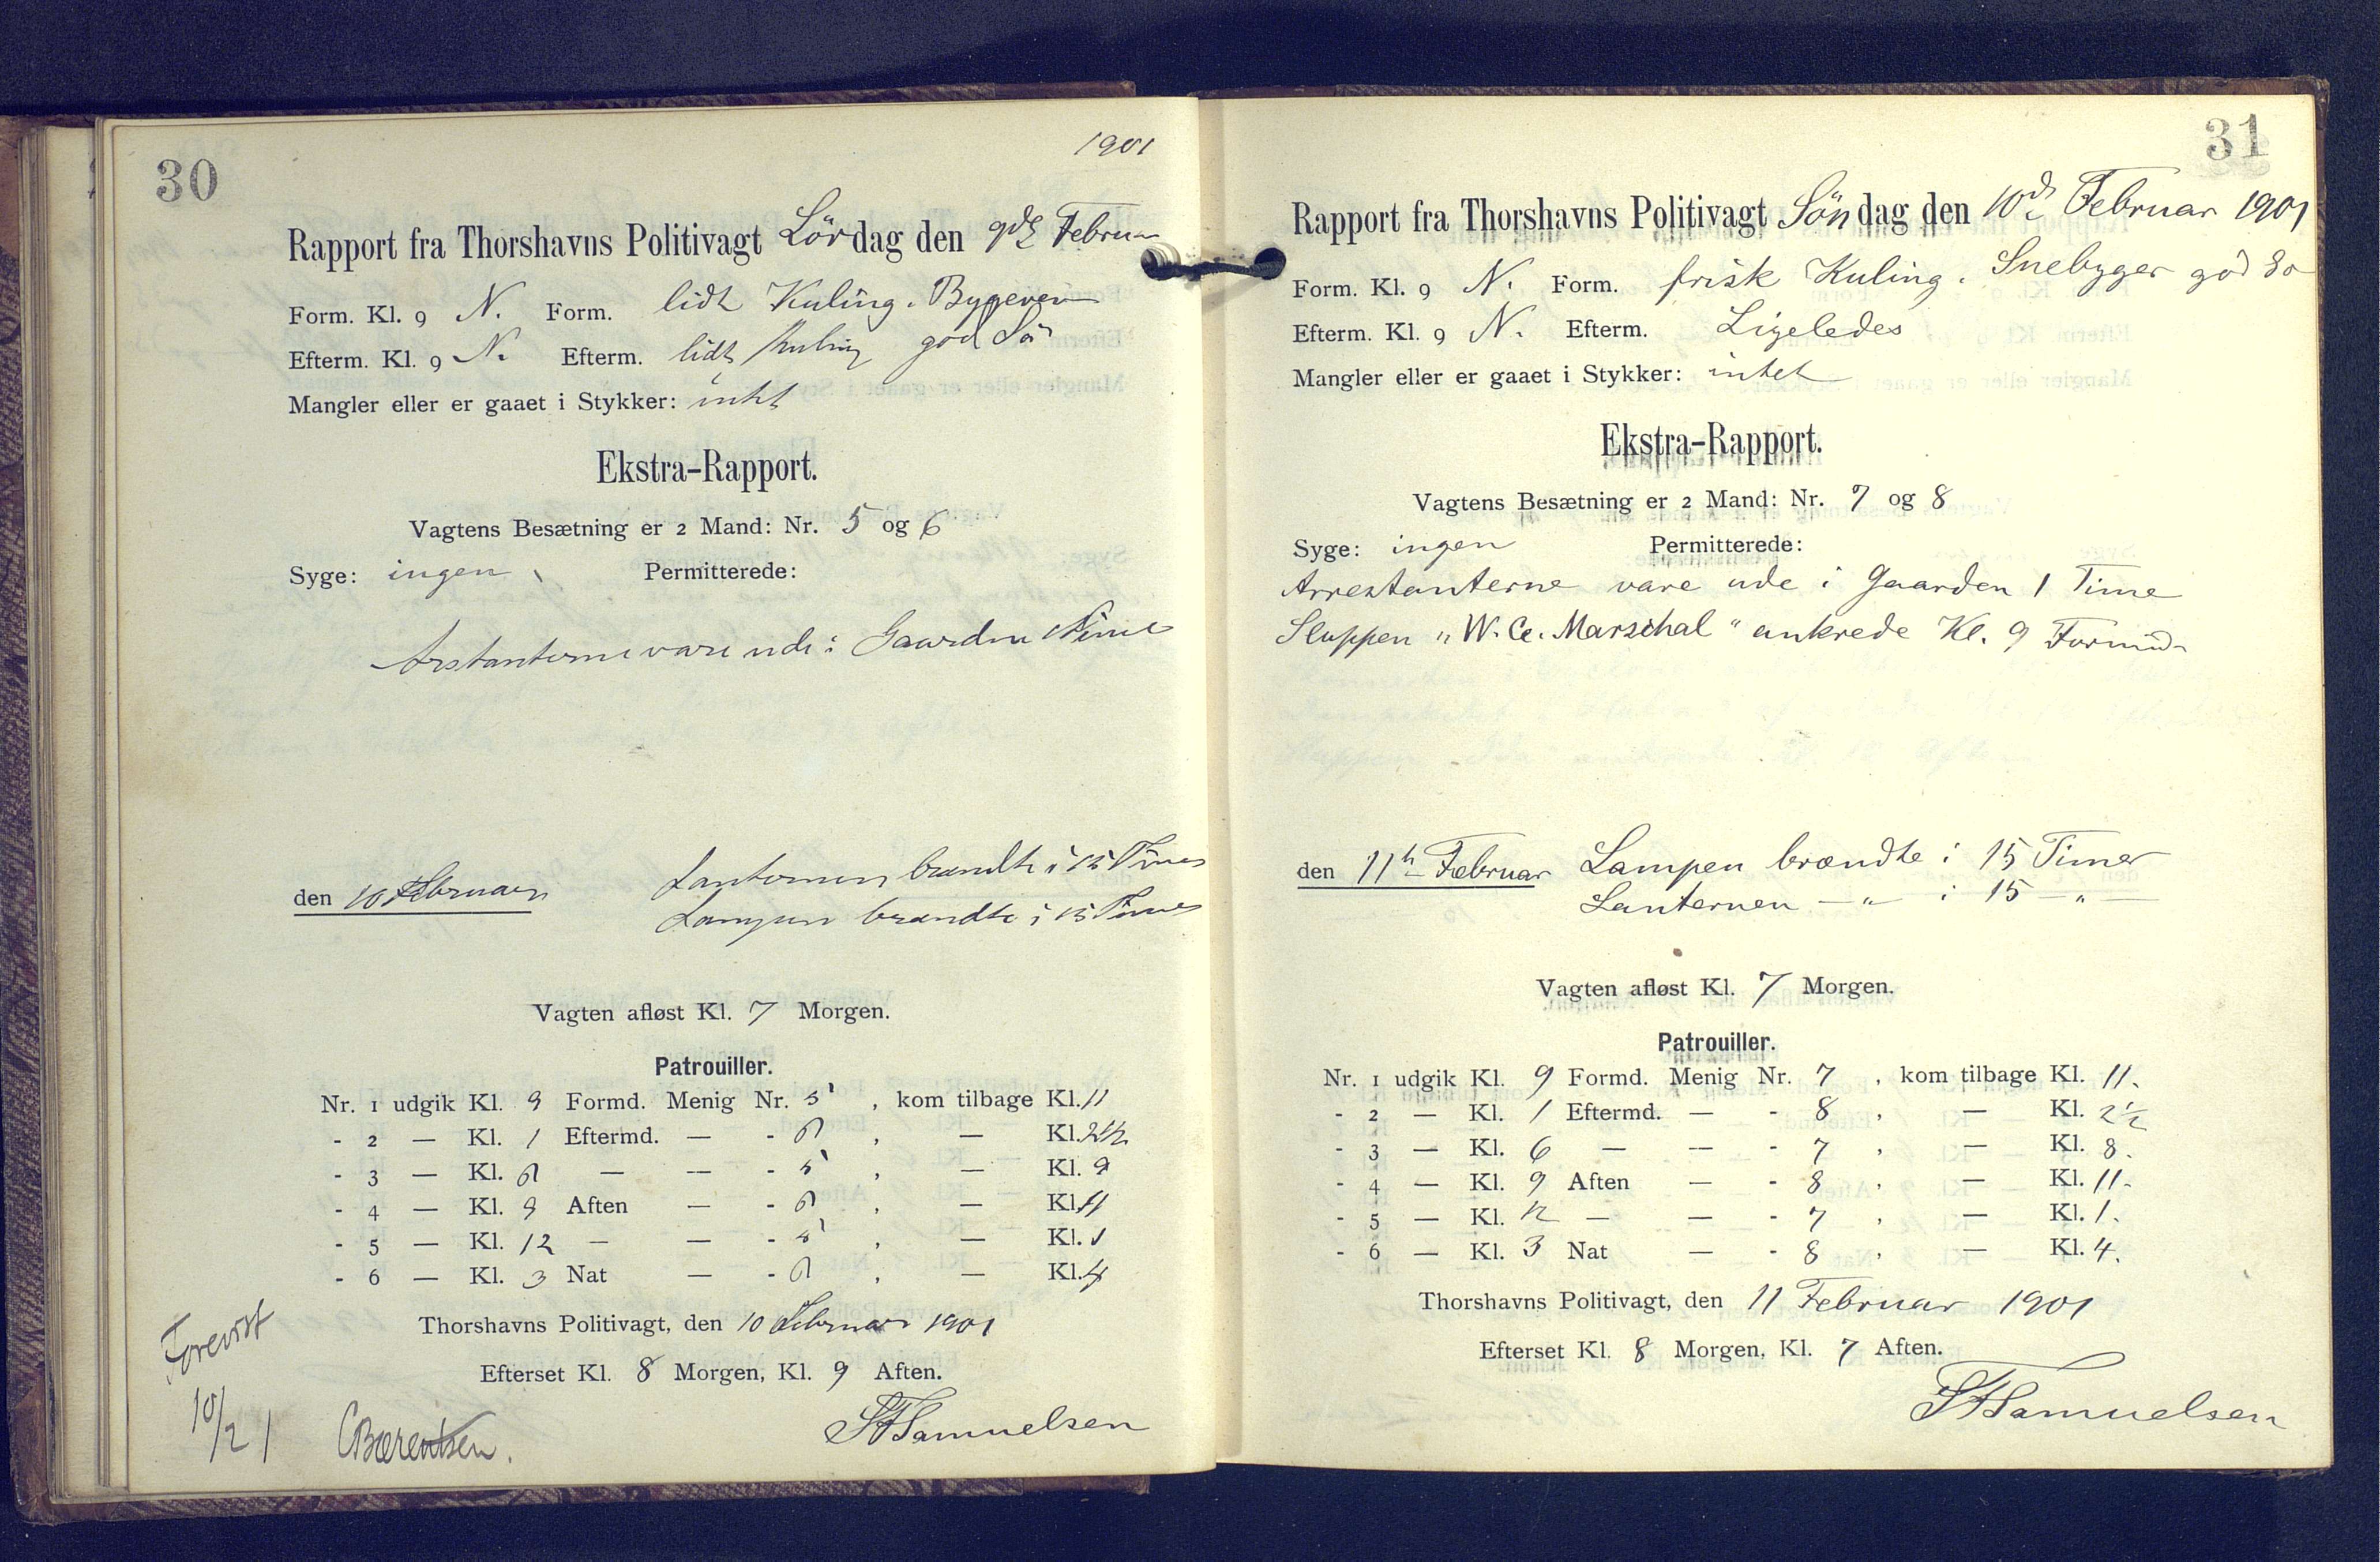 1901
30
Rapport fra Thorshavns Politivagt Lördag den 9de Februar
Form. Kl. 9 N. Form. lidt Kuling. Bygever
Efterm. Kl. 9 N. Efterm. lidt Kuling god Sö
Mangler eller er gaaet i Stykker: intet
Ekstra-Rapport.
Vagtens Besætning er 2 Mand: Nr. 5 og 6
Syge: ingen Permitterede:
Arstanterne vare ude i Gaarden 1 Time
den 10 Februar Lanternen brændte i 15 Timer
Lampen brændte i 15 Timer
Vagten afløst Kl. 7 Morgen.
Patrouiller.
Nr. 1 udgik Kl. 9 Formd. Menig Nr. 5, kom tilbage Kl. 11
- 2 — Kl. 1 Eftermd. — - 6, — Kl. 2½
- 3 — Kl. 6 — — - 5, — Kl. 9
- 4 — Kl. 9 Aften — - 6, — Kl. 11
- 5 — Kl. 12 — — - 5, — Kl. 1
- 6 — Kl. 3 Nat — - 6, — Kl. 4
Thorshavns Politivagt, den 10 Februar 1901
Efterset Kl. 8 Morgen, Kl. 9 Aften.
Forevist
10/2 1
CBærentsen.
Samuelsen
31
Rapport fra Thorshavns Politivagt Söndag den 10de Februar 1901
Form. Kl. 9 N. Form. frisk Kuling. Snebyger god Sö
Efterm. Kl. 9 N. Efterm. Ligeledes
Mangler eller er gaaet i Stykker: intet
Ekstra-Rapport.
Vagtens Besætning er 2 Mand: Nr. 7 og 8
Syge: ingen Permitterede:
Arrestanterne vare ude i Gaarden 1 Time
Sluppen "W. Ce. Marschal" ankrede Kl. 9 Formd.
den 11te Februar Lampen brændte i 15 Timer
Lanternen — " — i 15 — " —
Vagten afløst Kl. 7 Morgen.
Patrouiller.
Nr. 1 udgik Kl. 9 Formd. Menig Nr. 7, kom tilbage Kl. 11.
- 2 — Kl. 1 Eftermd. — - 8, — Kl. 2½
- 3 — Kl. 6 — — - 7, — Kl. 8.
- 4 — Kl. 9 Aften — - 8, — Kl. 11.
- 5 — Kl. 12 — — - 7, — Kl. 1.
- 6 — Kl. 3 Nat — - 8, — Kl. 4.
Thorshavns Politivagt, den 11 Februar 1901
Efterset Kl. 8 Morgen, Kl. 7 Aften.
Samuelsen